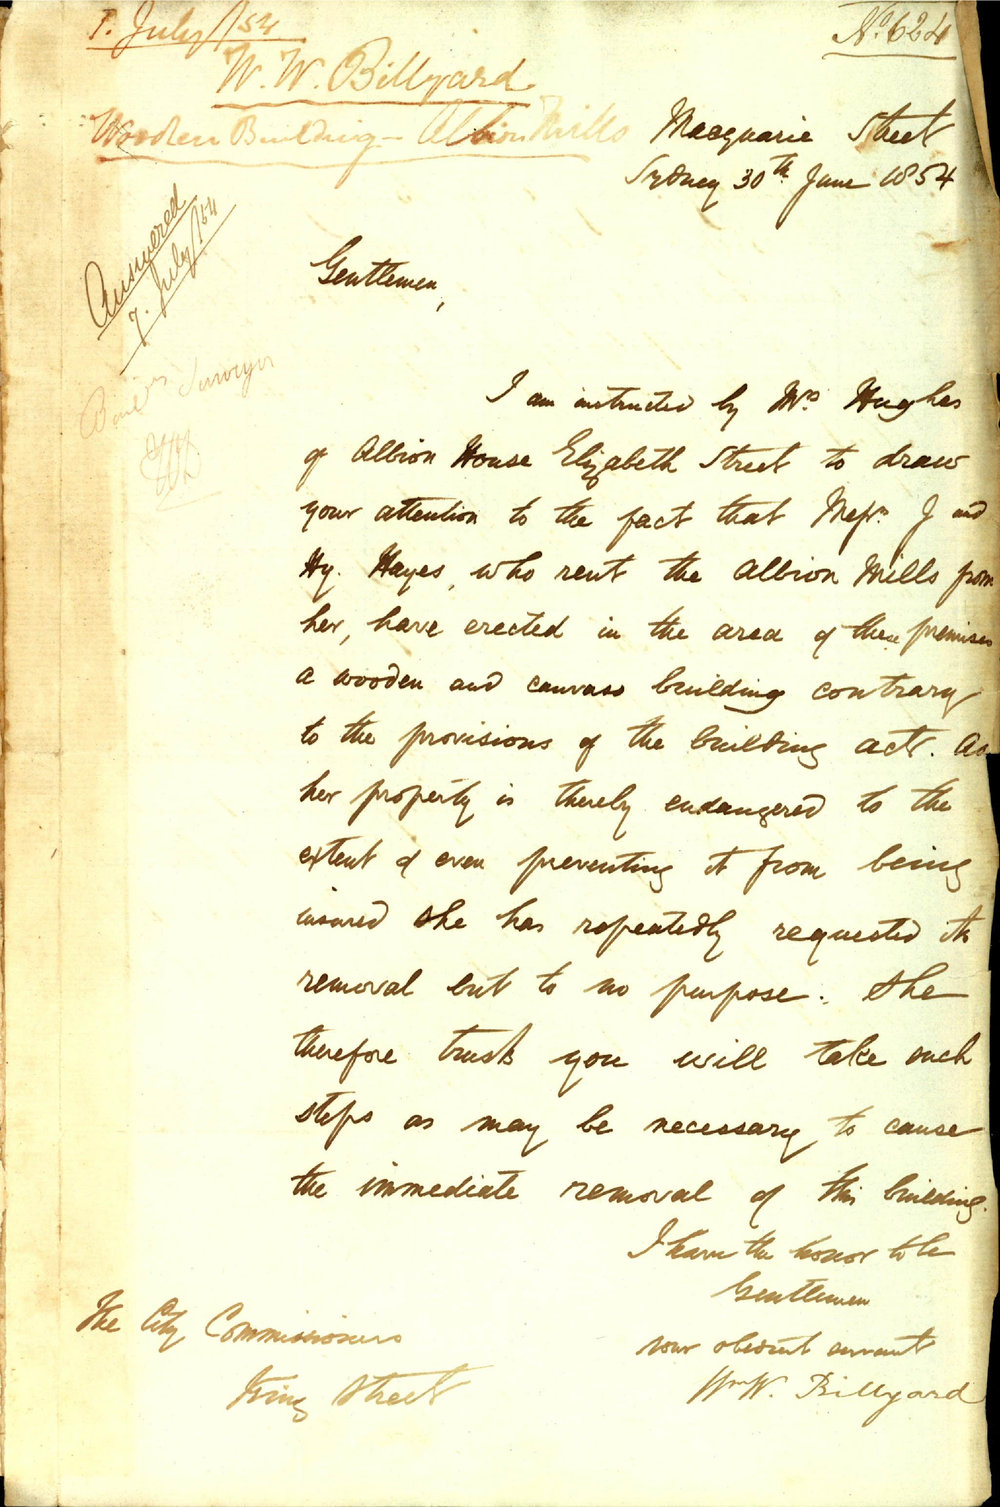 1. July/54
No. 624
W. W. Billyard
Wooden Building - Albion Mills
Macquarie Street
Sydney 30th June 1854
Answered
7. July/54
Gentlemen,
Surveyor
I am instructed by Mrs Hughes
of Albion House Elizabeth Street to draw
your attention to the fact that Messrs J and
Hy. Hayes, who rent the Albion Mills from
her, have erected in the area of these premises
a wooden and canvass building contrary
to the provisions of the building act. As
her property is thereby endangered to the
extent of even preventing it from being
insured she has repeatedly requested its
removal but to no purpose. She
therefore trusts you will take such
steps as may be necessary to cause
the immediate removal of this building.
I have the honor to be
Gentlemen
your obedient servant
Wm W. Billyard
The City Commissioners
King Street